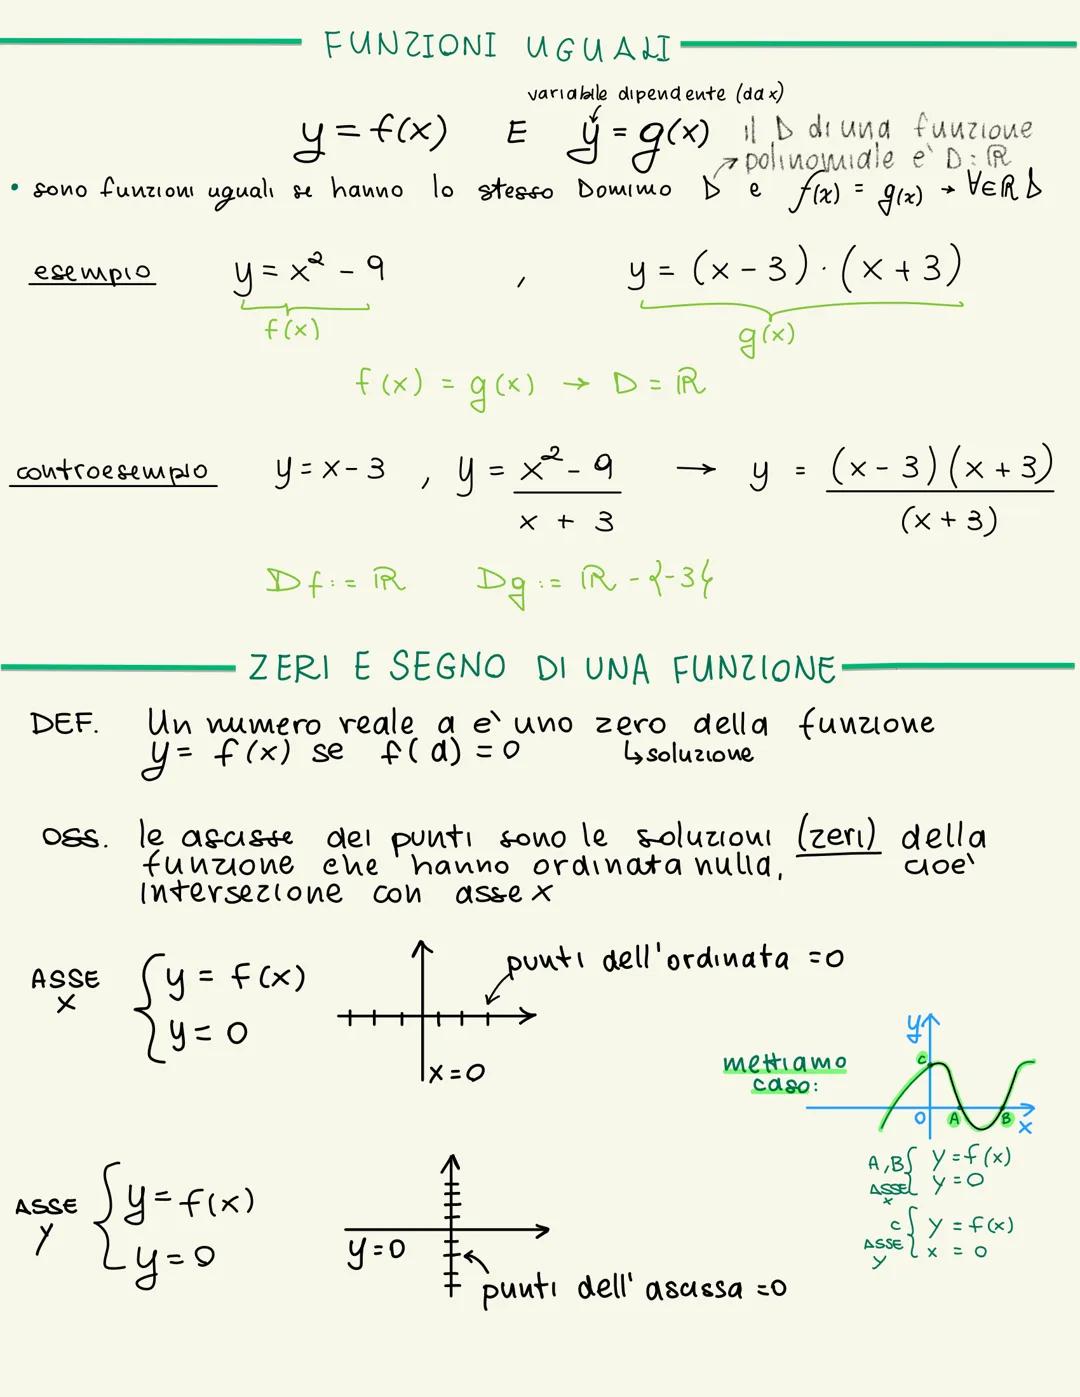 FUNZIONI UGUALI
variabile dipendente (da x)
y = f(x) E y = g(x) il D di una funzione
polinomiale e' D: ℝ
• sono funzioni uguali se hanno lo stesso Dominio D e f(x) = g(x) → ∀∈ℝ D
esempio y = x² - 9 , y = (x - 3) · (x + 3)
f(x) g(x)
f(x) = g(x) → D = ℝ
controesempio y = x - 3 , y = x² - 9 / x + 3 → y = (x - 3)(x + 3) / (x + 3)
Df := ℝ Dg := ℝ - {-3}
ZERI E SEGNO DI UNA FUNZIONE
DEF. Un numero reale a e' uno zero della funzione
y = f(x) se f(a) = 0 ↳ soluzione
OSS. le ascisse dei punti sono le soluzioni (zeri) della
funzione che hanno ordinata nulla, cioe'
intersezione con asse x
ASSE x { y = f(x)
y = 0
punti dell'ordinata =0
x = 0
mettiamo
caso:
y
C
O A B x
A,B { y = f(x)
ASSE x y = 0
C { y = f(x)
ASSE y x = 0
ASSE y { y = f(x)
y = 0
y = 0
punti dell' ascissa =0